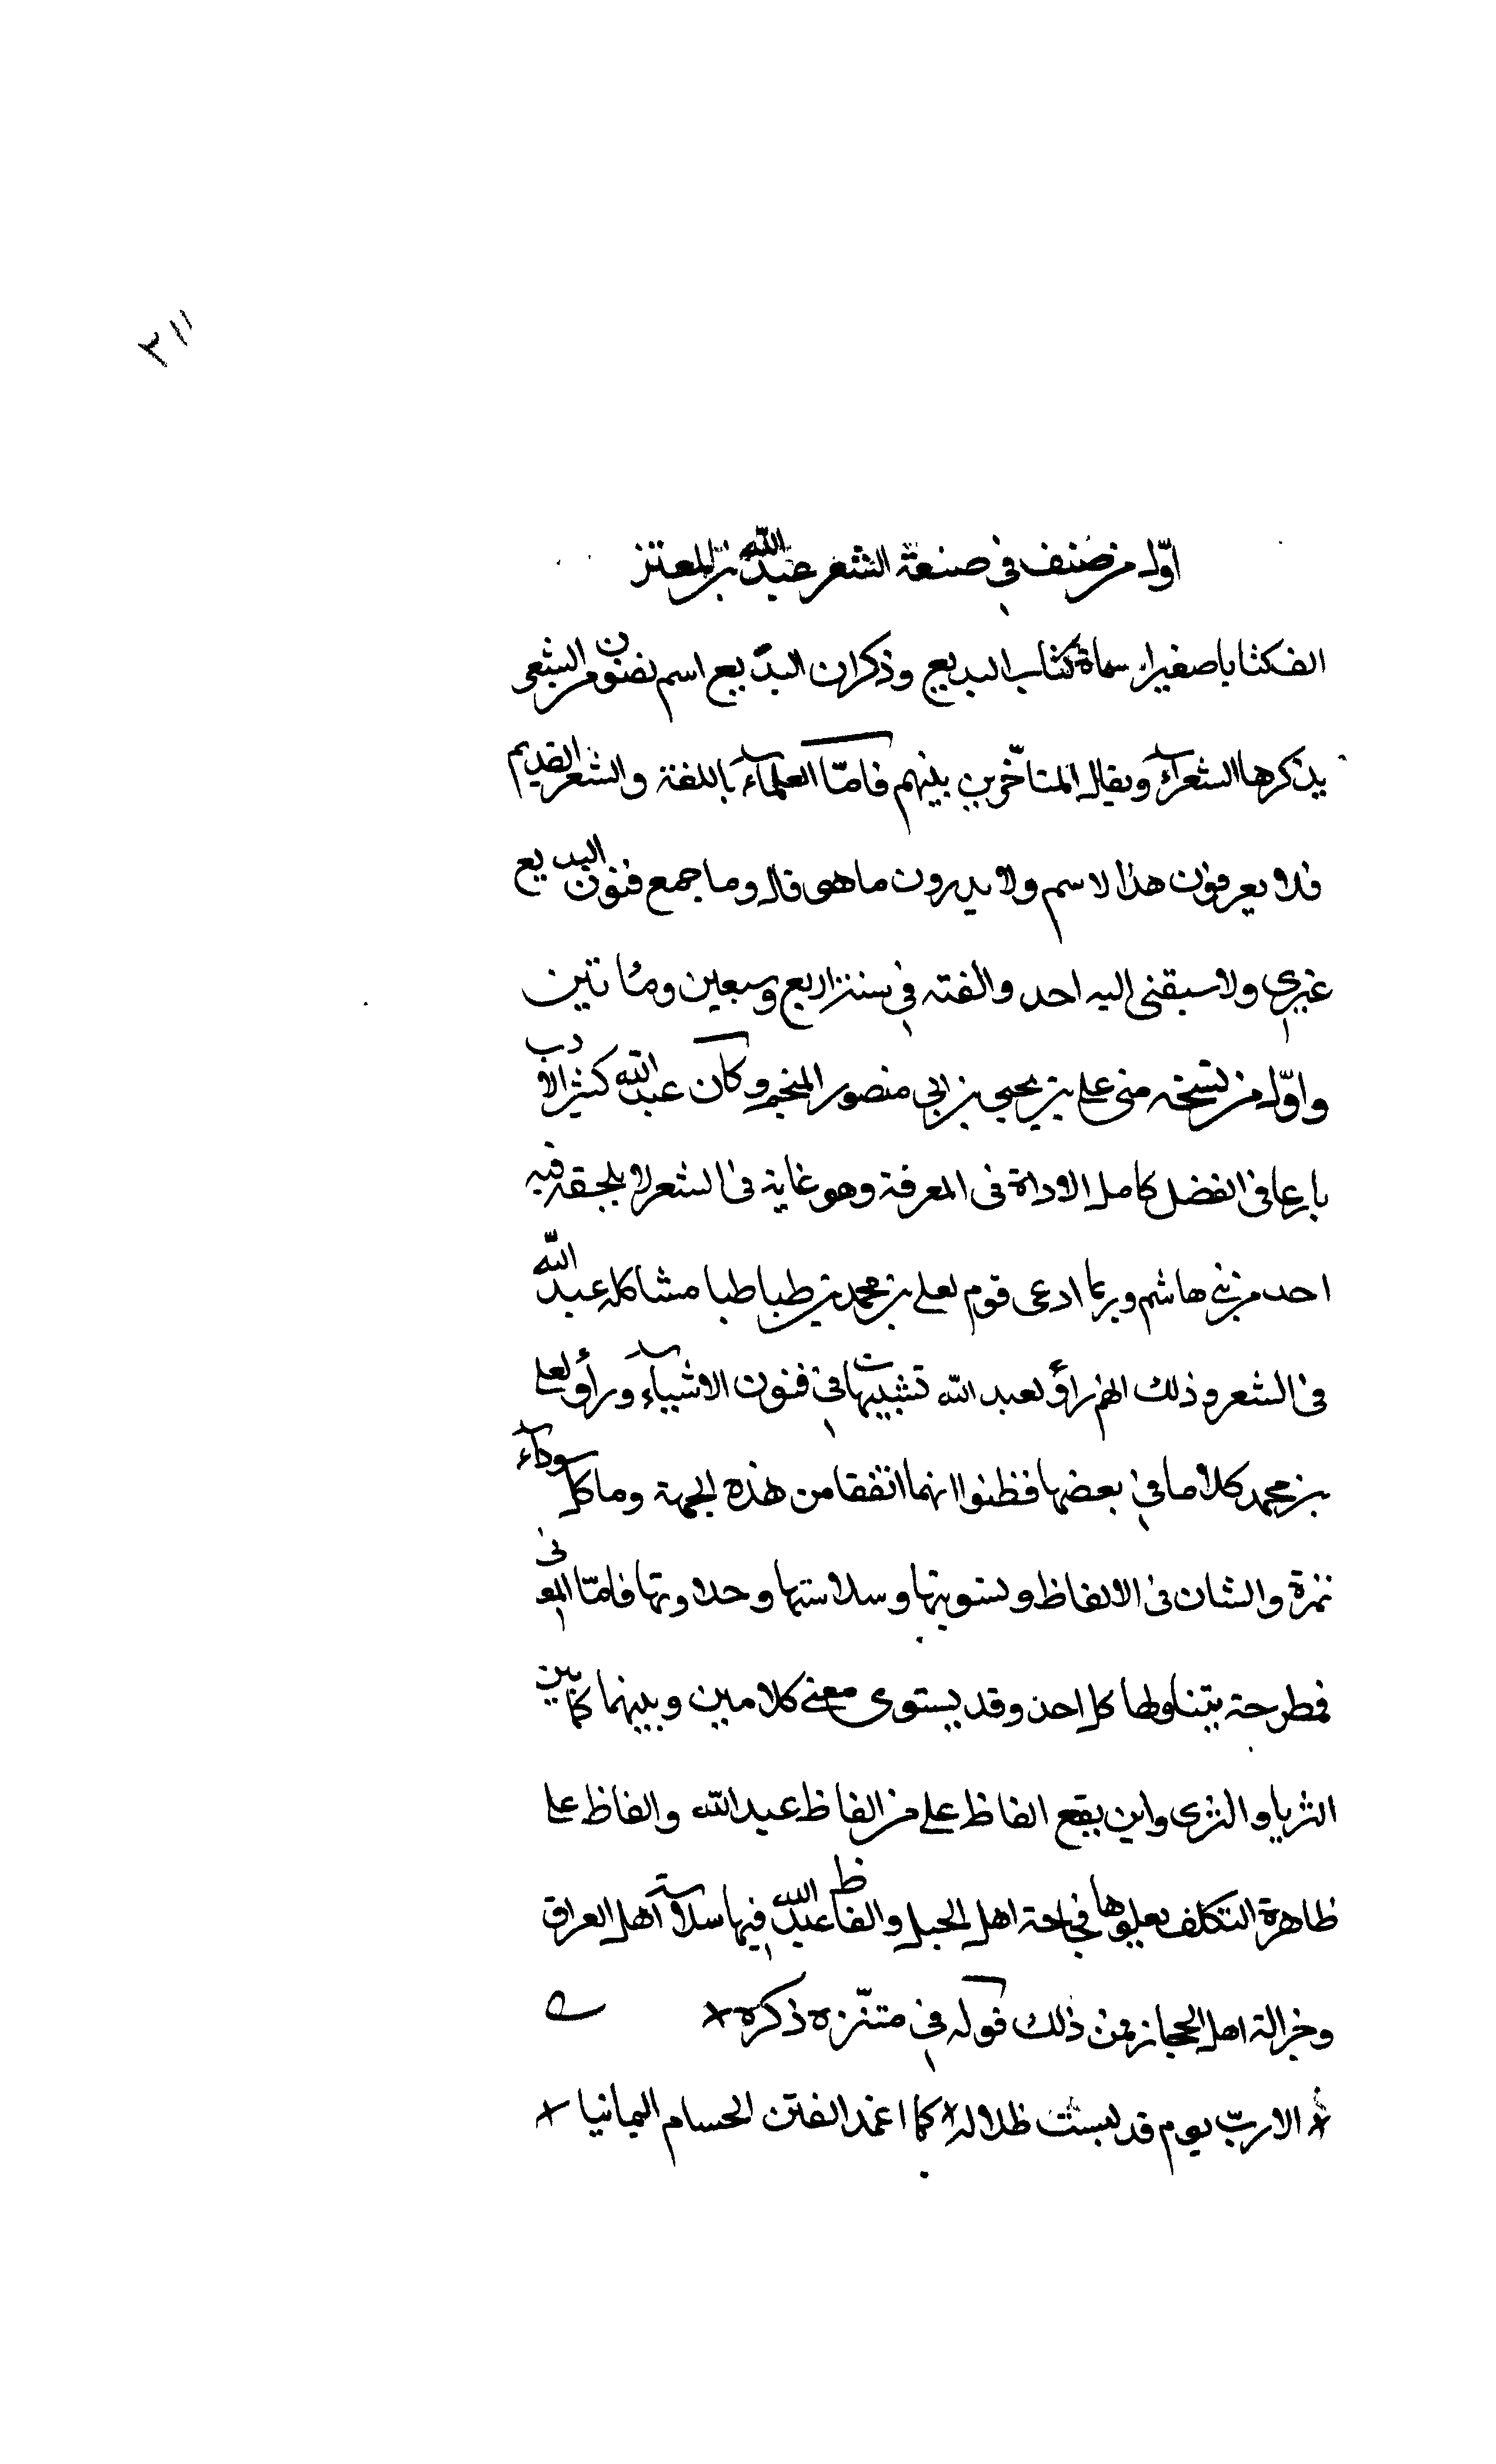 ٣١١
اوّل من صنف في صنعة الشعر عبد الله بن المعتز
الف كتابا صغيرا سماه كتاب البديع وذكر ان البديع اسم لفنون من الشعر
يذكرها الشعراء ويقال المتأخرين بينهم فامّا العلماء باللغة والشعر القديم
فلا يعرفون هذا الاسم ولا يدرون ما هو قال وما جمع فنون البديع
غيري ولا سبقني اليه احد والفته في سنة اربع وسبعين ومائتين
واوّل من نسخه مني علي بن يحيى بن ابي منصور المنجم وكان عبد الله كثير الادب
بارعا في الفضل كامل الاداة في المعرفة وهو غاية في الشعر لا يلحقه فيه
احد من بني هاشم وربما ادعى قوم لعلي بن محمد بن طباطبا مشاكلة عبد الله
في الشعر وذلك انهم رأوْ لعبد الله تشبيهات في فنون الاشياء ورأو لعلي
بن محمد كلاما في بعضها فظنوا انهما اتفقا من هذه الجهة وما كل سوداء
تمرة والشان في الالفاظ وتسويتها وسلاستها وحلاوتها فامّا المعاني
فمطرحة يتناولها كل احد وقد يستوي معنى كلامين وبينهما كما بين
الثريا والثرى واين يقع الفاظ علي من الفاظ عبد الله والفاظ علي
ظاهرة التكلف يعلوها فجاجة اهل الجبل والفاظ عبد الله فيها سلاسة اهل العراق
وجزالة اهل الحجاز فمن ذلك قوله في متنزه ذكره
الا ربّ يوم قد لبست ظلاله كما اغمد الفتن الحسام اليمانيا